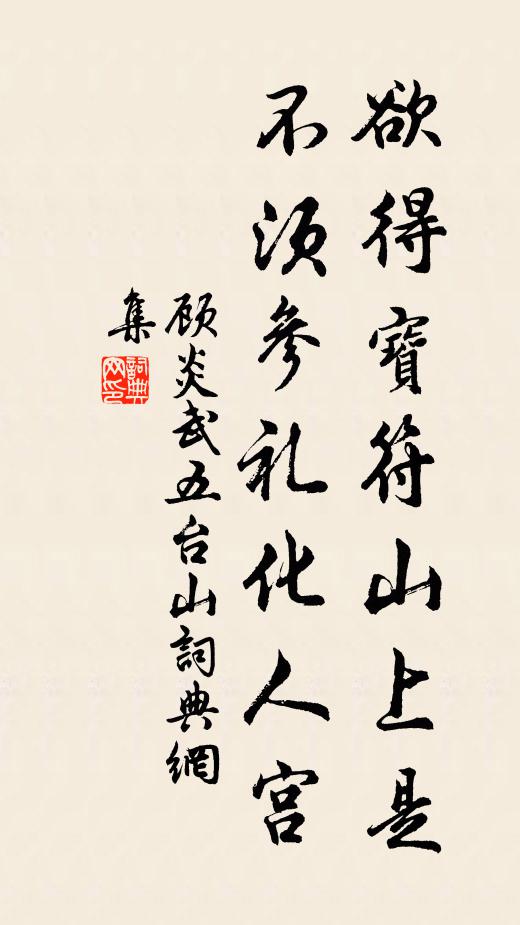 欲得寶符山上是
不須參礼化人宫
顾炎武五台山詞典網
集
詞典網印